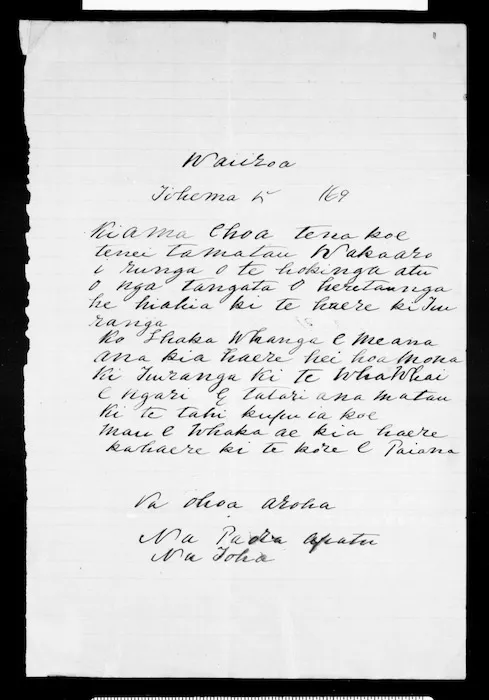 Wairoa
Tihema 5 /69
Kia Ma E hoa tena koe
tenei ta matau Wakaaro
i runga O te hokinga atu
O nga tangata O heretaunga
he hiahia ki te haere ki Tuu
ranga
Ko Ihaka Whanga E meana
ana kia haere hei hoa mona
Ki Tuuranga Ki te WhaWhai
E ngari E tatari ana matau
Ki te tahi kupu ia koe
mau E Whaka ae kia haere
kahaere ki te kore E Paiana
Na ohoa aroha
Na Paora apatu
Na Toha